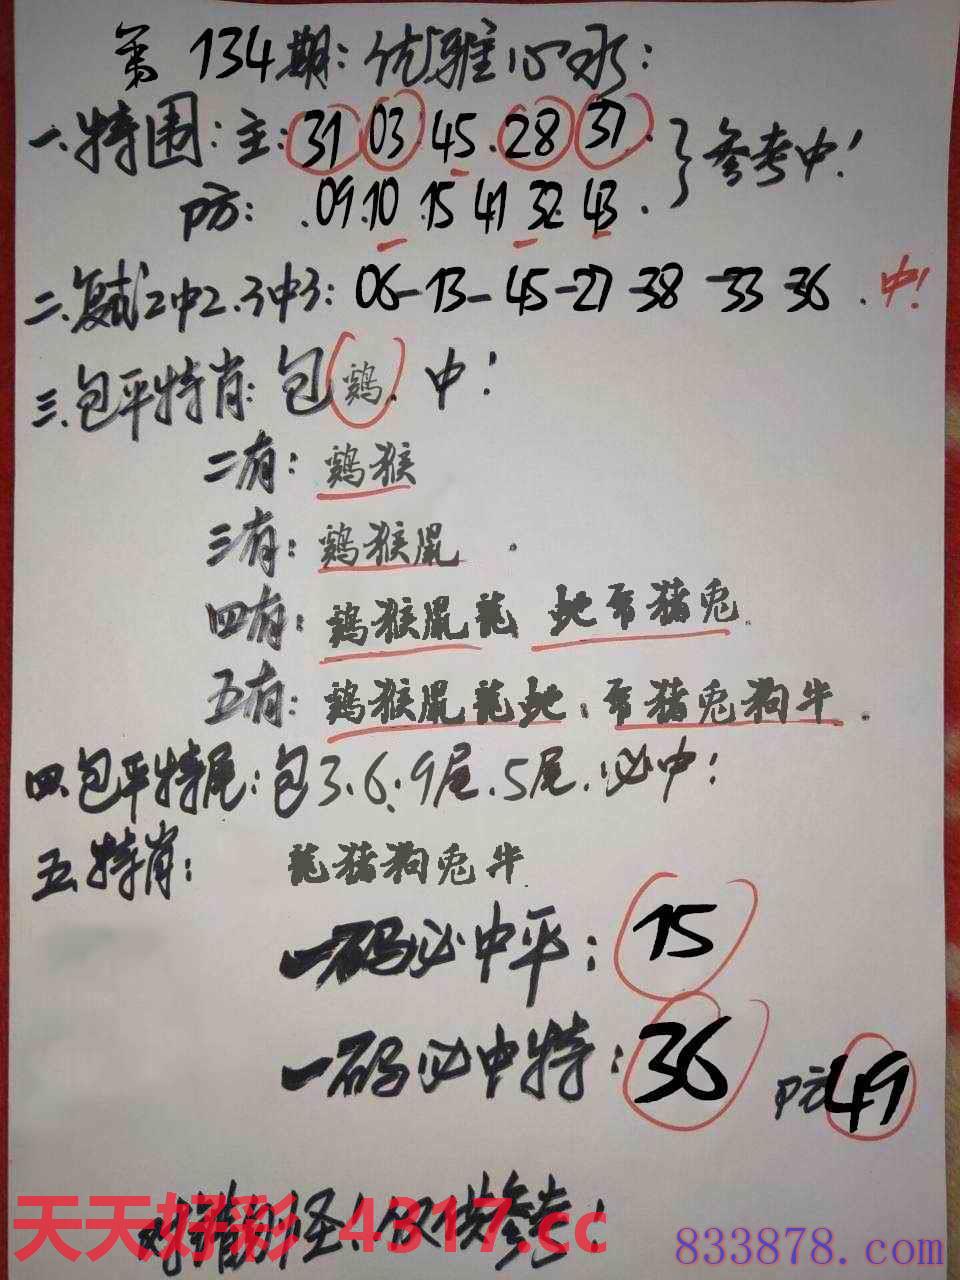 第134期:优雅心水:
一.特围:主:31 03 45.28 37.}参考中!
防: .09.10 .15 41 32. 43 .
二.复式2中2.3中3: 06-13-45-27-38-33-36 .中!
三.包平特肖:包鸡.中!
二有:鸡猴
三有:鸡猴鼠 .
四有:鸡猴鼠龙 蛇 猪兔.
五有:鸡猴鼠龙蛇: 猪兔狗牛.
四.包平特尾:包3.6.9尾.5尾.必中!
五.特肖: 龙猪狗兔牛.
一码必中平:15
一码必中特:36 防49
对错别怪!仅供参考!
天天好彩 4317.cc
833878.com